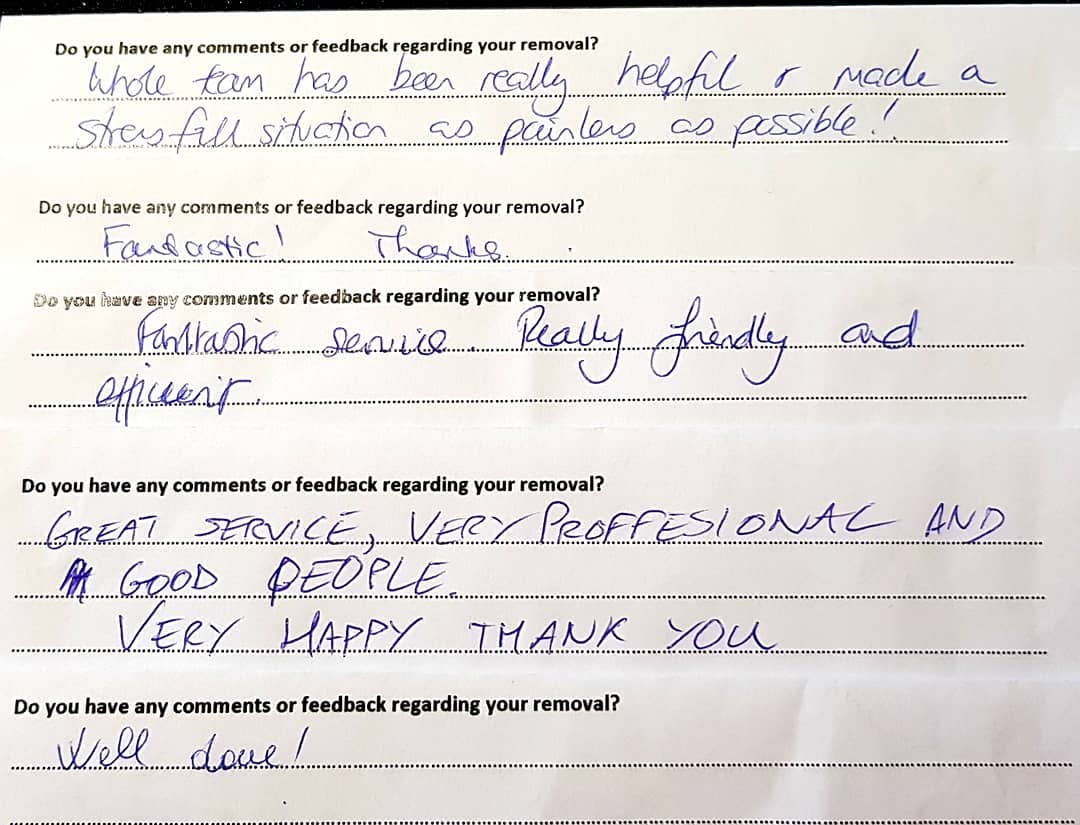 Do you have any comments or feedback regarding your removal?
Whole team has been really helpful & made a
stressfull situation as painless as possible!
Do you have any comments or feedback regarding your removal?
Fantastic! Thanks.
Do you have any comments or feedback regarding your removal?
Fantastic service. Really friendly and
efficient.
Do you have any comments or feedback regarding your removal?
GREAT SERVICE, VERY PROFFESIONAL AND
GOOD PEOPLE.
VERY HAPPY THANK YOU
Do you have any comments or feedback regarding your removal?
Well done!